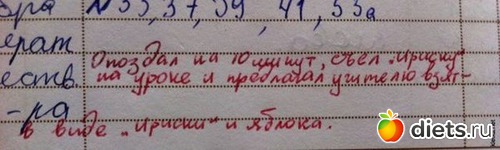 ра N 35, 37, 39, 41, 53а
ерат
Опоздал на 10 минут, съел "Ириску"
еств на уроке и предлагал учителю взят-
-ра
в виде "Ириски" и яблока.
diets.ru